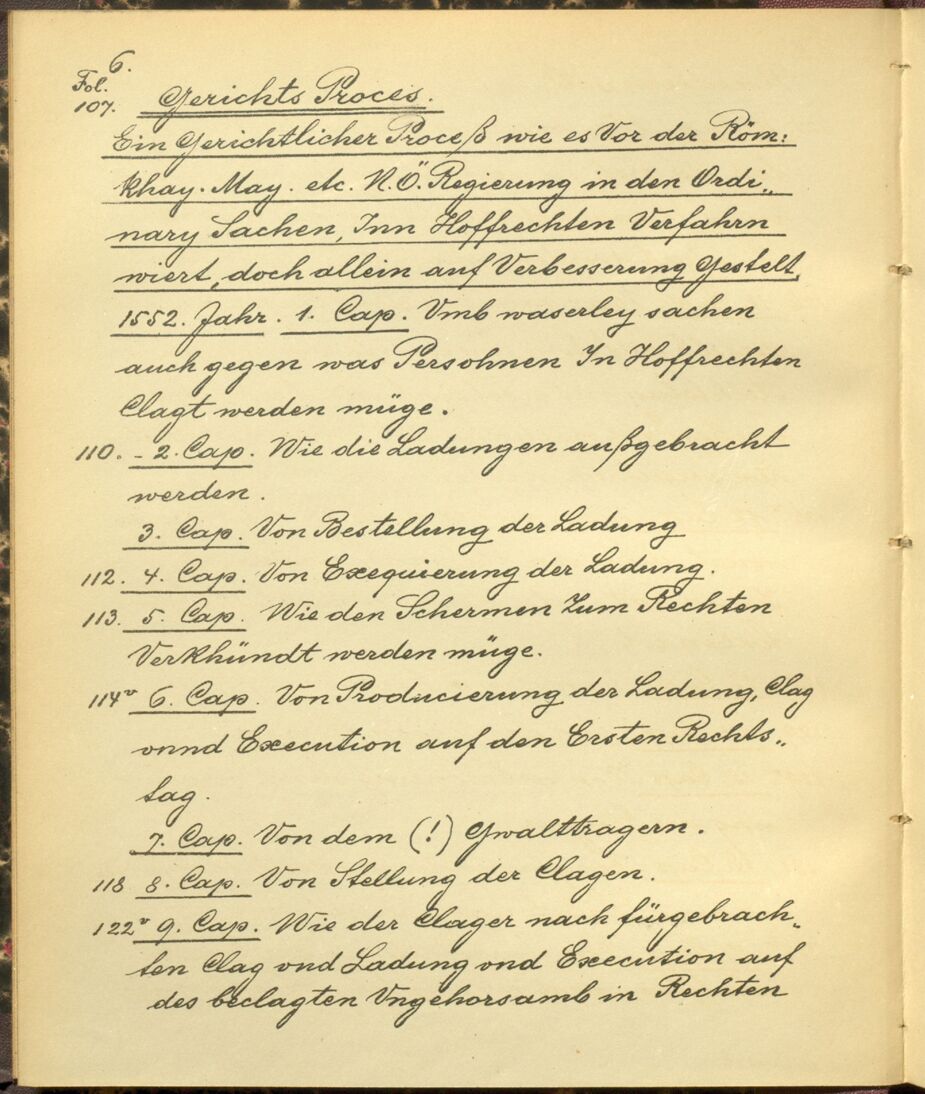 6.
Fol.
107. Gerichts Proces.
Ein Gerichtlicher Proceß wie es Vor der Röm:
Khay. May. etc. N.Ö. Regierung in den Ordi„
nary Sachen, Inn Hoffrechten Verfahrn
wiert, doch allein auf Verbesserung Gestelt,
1552. Jahr. 1. Cap. Vmb waserley sachen
auch gegen was Persohnen In Hoffrechten
Clagt werden müge.
110. - 2. Cap. Wie die Ladungen außgebracht
werden.
3. Cap. Von Bestellung der Ladung
112. 4. Cap. Von Exequierung der Ladung.
113. 5. Cap. Wie den Schermen Zum Rechten
Verkhündt werden müge.
114v 6. Cap. Von Producierung der Ladung, Clag
vnnd Execution auf den Ersten Rechts„
tag.
7. Cap. Von dem (!) Gwalttragern.
118 8. Cap. Von Stellung der Clagen.
122v 9. Cap. Wie der Clager nach fürgebrach„
ten Clag vnd Ladung vnd Execution auf
des beclagten Vngehorsamb in Rechten